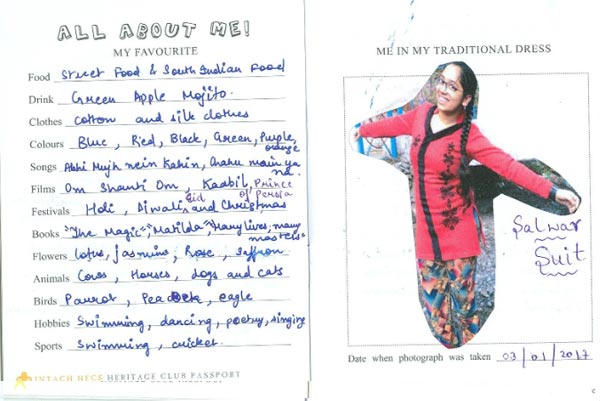 ALL ABOUT ME!
MY FAVOURITE
Food Street Food & South Indian Food
Drink Green Apple Mojito.
Clothes cotton and silk clothes
Colours Blue, Red, Black, Green, Purple, orange
Songs Abhi Mujh mein Kahin, Chahu main ya na.
Films Om Shanti Om, Kaabil, Prince of Persia
Festivals Holi, Diwali, Eid and Christmas
Books "The Magic", "Matilda", "Many lives, many masters"
Flowers lotus, jasmine, Rose, saffron
Animals Cows, Horses, dogs and cats
Birds Parrot, Peacock, eagle
Hobbies Swimming, dancing, poetry, singing
Sports Swimming, cricket.
INTACH HECS HERITAGE CLUB PASSPORT
ME IN MY TRADITIONAL DRESS
Salwar
Suit
Date when photograph was taken 03/01/2017